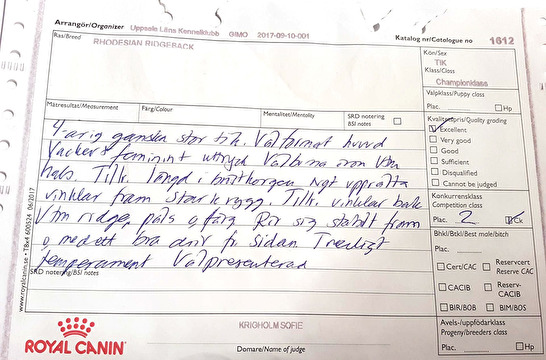 Arrangör/Organizer Uppsala Läns Kennelklubb GIMO 2017-09-10-001
Katalog nr/Catalogue no 1612
Ras/Breed RHODESIAN RIDGEBACK
Kön/Sex
TIK
Klass/Class
Championklass
Valpklass/Puppy class
Plac. Hp
Mätresultat/Measurement Färg/Colour Mentalitet/Mentality SRD notering
BSI notes
Kvalitetspris/Quality grading
Excellent
Very good
Good
Sufficient
Disqualified
Cannot be judged
4-årig ganska stor tik. Välformat huvud
Vackert feminint uttryck Välburna öron Utm
hals. Tillr. längd i bröstkorgen Ngt upprätta
vinklar fram Stark rygg. Tillr. vinklar bak
Utm ridge, päls o färg Rör sig stabilt fram
o med ett bra driv fr sidan Trevligt
temperament Välpresenterad
Konkurrensklass
Competition class
Plac. 2 Ck
Bhkl/Btkl/Best male/bitch
Plac.
Cert/CAC Reservcert
Reserve CAC
CACIB Reserv-
CACIB
BIR/BOB BIM/BOS
Avels-/uppfödarklass
Progeny/breeders class
Plac. Hp
SRD notering/BSI notes
www.royalcanin.se • TBk4 600524 06/2017
KRIGHOLM SOFIE
Domare/Name of judge
ROYAL CANIN